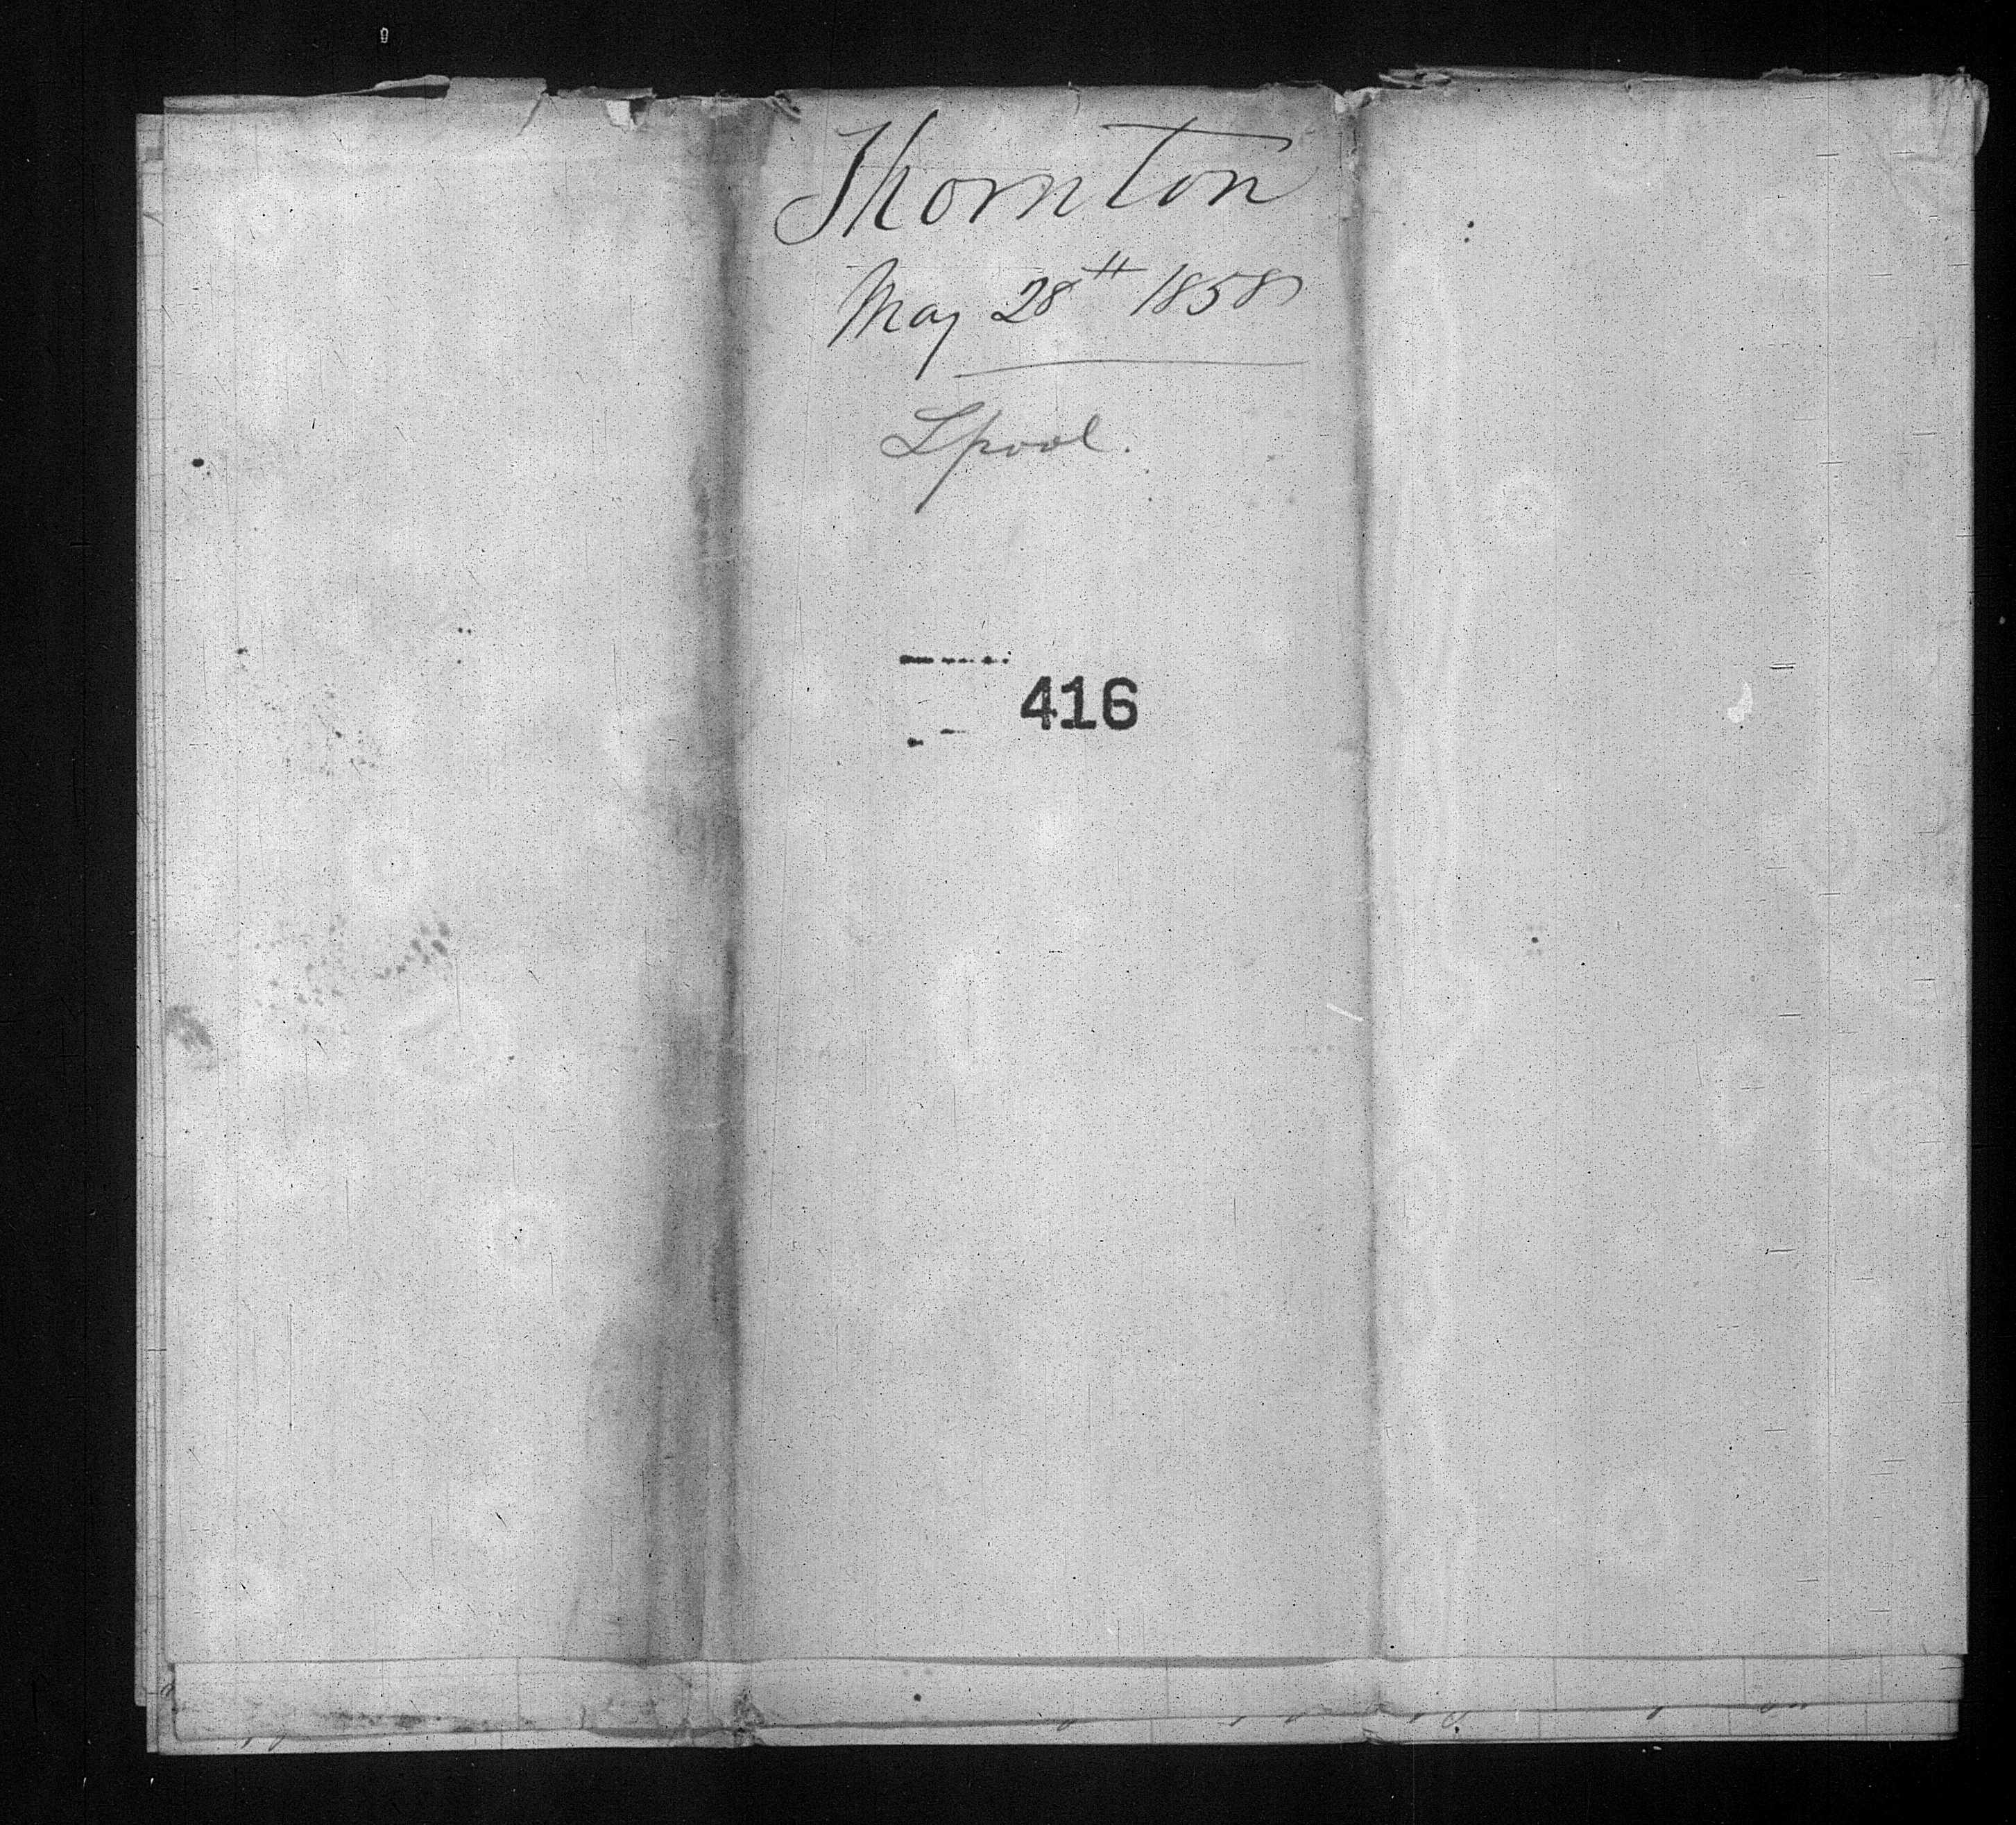 Thornton
May 28th 1858
Lpool.
416